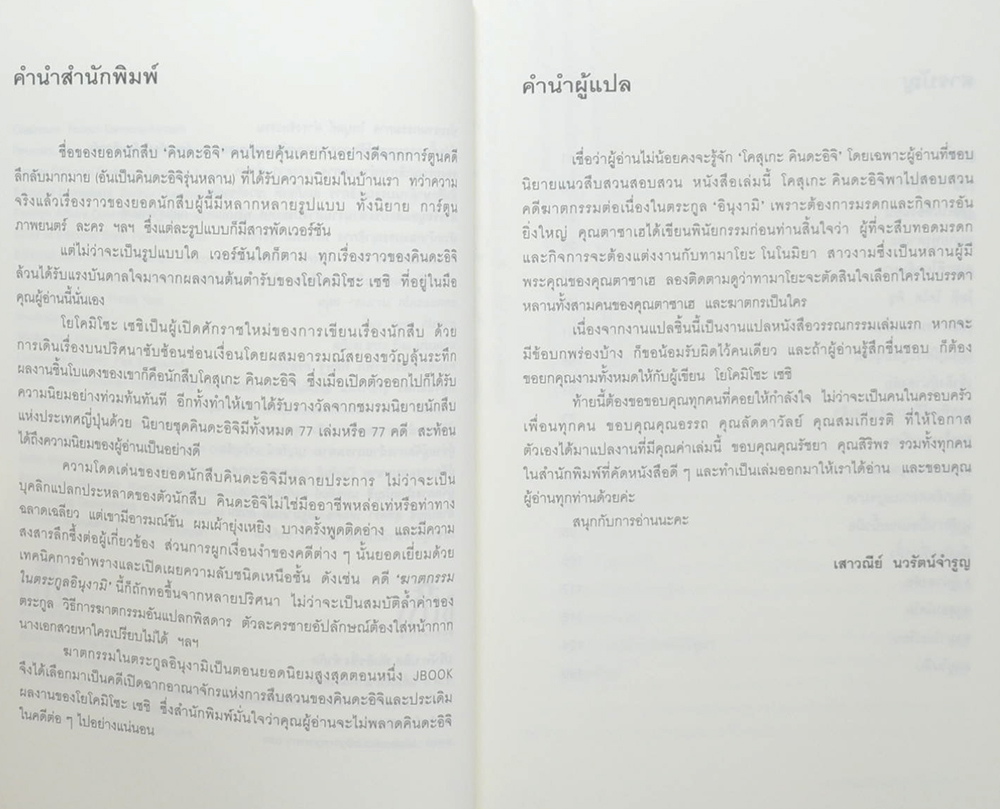 คำนำสำนักพิมพ์
ชื่อของยอดนักสืบ ‘คินดะอิจิ’ คนไทยคุ้นเคยกันอย่างดีจากการ์ตูนคดี
ลึกลับมากมาย (อันเป็นคินดะอิจิรุ่นหลาน) ที่ได้รับความนิยมในบ้านเรา ทว่าความ
จริงแล้วเรื่องราวของยอดนักสืบผู้นี้มีหลากหลายรูปแบบ ทั้งนิยาย การ์ตูน
ภาพยนตร์ ละคร ฯลฯ ซึ่งแต่ละรูปแบบก็มีสารพัดเวอร์ชัน
แต่ไม่ว่าจะเป็นรูปแบบใด เวอร์ชันใดก็ตาม ทุกเรื่องราวของคินดะอิจิ
ล้วนได้รับแรงบันดาลใจมาจากผลงานต้นตำรับของโยโคมิโซะ เซชิ ที่อยู่ในมือ
คุณผู้อ่านนี้นั่นเอง
โยโคมิโซะ เซชิเป็นผู้เปิดศักราชใหม่ของการเขียนเรื่องนักสืบ ด้วย
การเดินเรื่องบนปริศนาซับซ้อนซ่อนเงื่อนโดยผสมอารมณ์สยองขวัญลุ้นระทึก
ผลงานชิ้นโบแดงของเขาก็คือนักสืบโคสุเกะ คินดะอิจิ ซึ่งเมื่อเปิดตัวออกไปก็ได้รับ
ความนิยมอย่างท่วมท้นทันที อีกทั้งทำให้เขาได้รับรางวัลจากชมรมนิยายนักสืบ
แห่งประเทศญี่ปุ่นด้วย นิยายชุดคินดะอิจิมีทั้งหมด 77 เล่มหรือ 77 คดี สะท้อน
ได้ถึงความนิยมของผู้อ่านเป็นอย่างดี
ความโดดเด่นของยอดนักสืบคินดะอิจิมีหลายประการ ไม่ว่าจะเป็น
บุคลิกแปลกประหลาดของตัวนักสืบ คินดะอิจิไม่ใช่มืออาชีพหล่อเท่หรือท่าทาง
ฉลาดเฉลียว แต่เขามีอารมณ์ขัน ผมเผ้ายุ่งเหยิง บางครั้งพูดติดอ่าง และมีความ
สงสารลึกซึ้งต่อผู้เกี่ยวข้อง ส่วนการผูกเงื่อนงำของคดีต่าง ๆ นั้นยอดเยี่ยมด้วย
เทคนิคการอำพรางและเปิดเผยความลับชนิดเหนือชั้น ดังเช่น คดี ‘ฆาตกรรม
ในตระกูลอินุงามิ’ นี้ก็ถักทอขึ้นจากหลายปริศนา ไม่ว่าจะเป็นสมบัติล้ำค่าของ
ตระกูล วิธีการฆาตกรรมอันแปลกพิสดาร ตัวละครชายอัปลักษณ์ต้องใส่หน้ากาก
นางเอกสวยหาใครเปรียบไม่ได้ ฯลฯ
ฆาตกรรมในตระกูลอินุงามิเป็นตอนยอดนิยมสูงสุดตอนหนึ่ง JBOOK
จึงได้เลือกมาเป็นคดีเปิดฉากอาณาจักรแห่งการสืบสวนของคินดะอิจิและประเดิม
ผลงานของโยโคมิโซะ เซชิ ซึ่งสำนักพิมพ์มั่นใจว่าคุณผู้อ่านจะไม่พลาดคินดะอิจิ
ในคดีต่อ ๆ ไปอย่างแน่นอน
คำนำผู้แปล
เชื่อว่าผู้อ่านไม่น้อยคงจะรู้จัก ‘โคสุเกะ คินดะอิจิ’ โดยเฉพาะผู้อ่านที่ชอบ
นิยายแนวสืบสวนสอบสวน หนังสือเล่มนี้ โคสุเกะ คินดะอิจิพาไปสอบสวน
คดีฆาตกรรมต่อเนื่องในตระกูล ‘อินุงามิ’ เพราะต้องการมรดกและกิจการอัน
ยิ่งใหญ่ คุณตาซาเฮได้เขียนพินัยกรรมก่อนท่านสิ้นใจว่า ผู้ที่จะสืบทอดมรดก
และกิจการจะต้องแต่งงานกับทามาโยะ โนโนมิยา สาวงามซึ่งเป็นหลานผู้มี
พระคุณของคุณตาซาเฮ ลองติดตามดูว่าทามาโยะจะตัดสินใจเลือกใครในบรรดา
หลานทั้งสามคนของคุณตาซาเฮ และฆาตกรเป็นใคร
เนื่องจากงานแปลชิ้นนี้เป็นงานแปลหนังสือวรรณกรรมเล่มแรก หากจะ
มีข้อบกพร่องบ้าง ก็ขอน้อมรับผิดไว้คนเดียว และถ้าผู้อ่านรู้สึกชื่นชอบ ก็ต้อง
ขอยกคุณงามทั้งหมดให้กับผู้เขียน โยโคมิโซะ เซชิ
ท้ายนี้ต้องขอขอบคุณทุกคนที่คอยให้กำลังใจ ไม่ว่าจะเป็นคนในครอบครัว
เพื่อนทุกคน ขอบคุณคุณอรรถ คุณลัดดาวัลย์ คุณสมเกียรติ ที่ให้โอกาส
ตัวเองได้มาแปลงานที่มีคุณค่าเล่มนี้ ขอบคุณคุณรัชยา คุณสิริพร รวมทั้งทุกคน
ในสำนักพิมพ์ที่คัดหนังสือดี ๆ และทำเป็นเล่มออกมาให้เราได้อ่าน และขอบคุณ
ผู้อ่านทุกท่านด้วยค่ะ
สนุกกับการอ่านนะคะ
เสาวณีย์ นวรัตน์จำรูญ